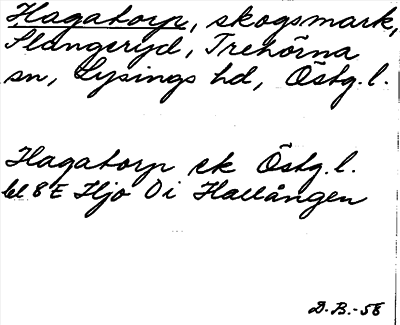 Hagatorp, skogsmark,
Slangeryd, Trehörna
sn, Lysings hd, Östg. l.
Hagatorp ek Östg. l.
bl 8 E Hjo O i Hallången
D. B. -58